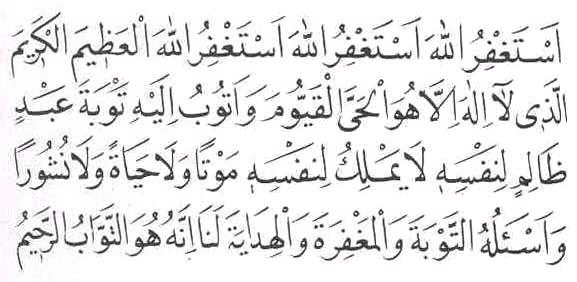 اَسْتَغْفِرُ اللهَ اَسْتَغْفِرُ اللهَ اَسْتَغْفِرُ اللهَ الْعَظِيمَ الْكَرِيمَ
الَّذِي لَآ اِلٰهَ اِلَّا هُوَ الْحَيَّ الْقَيُّومَ وَاَتُوبُ اِلَيْهِ تَوْبَةَ عَبْدٍ
ظَالِمٍ لِنَفْسِهِ لَا يَمْلِكُ لِنَفْسِهِ مَوْتًا وَلَا حَيَاةً وَلَا نُشُورًا
وَاَسْئَلُهُ التَّوْبَةَ وَالْمَغْفِرَةَ وَالْهِدَايَةَ لَنَا اِنَّهُ هُوَ التَّوَّابُ الرَّحِيمُ